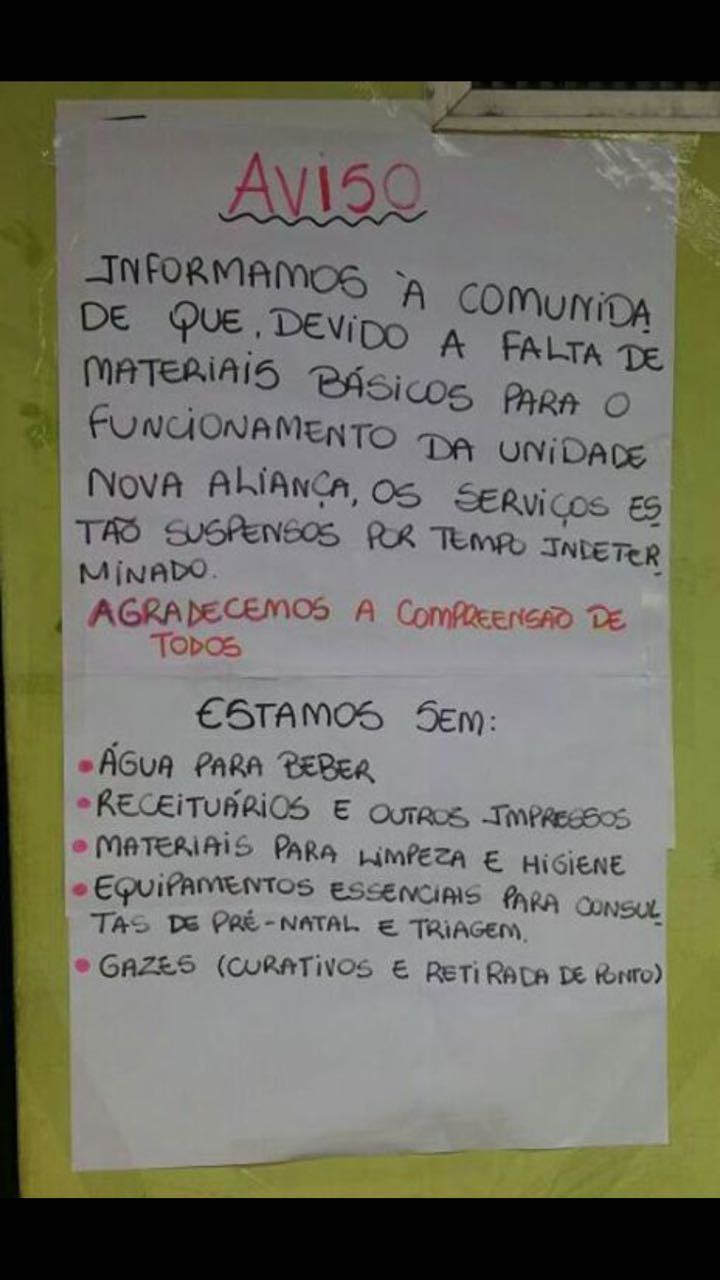 AVISO
INFORMAMOS À COMUNIDA
DE QUE, DEVIDO A FALTA DE
MATERIAIS BÁSICOS PARA O
FUNCIONAMENTO DA UNIDADE
NOVA ALIANÇA, OS SERVIÇOS ES
TÃO SUSPENSOS POR TEMPO INDETER
MINADO.
AGRADECEMOS A COMPREENSÃO DE
TODOS
ESTAMOS SEM:
• ÁGUA PARA BEBER
• RECEITUÁRIOS E OUTROS IMPRESSOS
• MATERIAIS PARA LIMPEZA E HIGIENE
• EQUIPAMENTOS ESSENCIAIS PARA CONSUL
TAS DE PRÉ-NATAL E TRIAGEM.
• GAZES (CURATIVOS E RETIRADA DE PONTO)